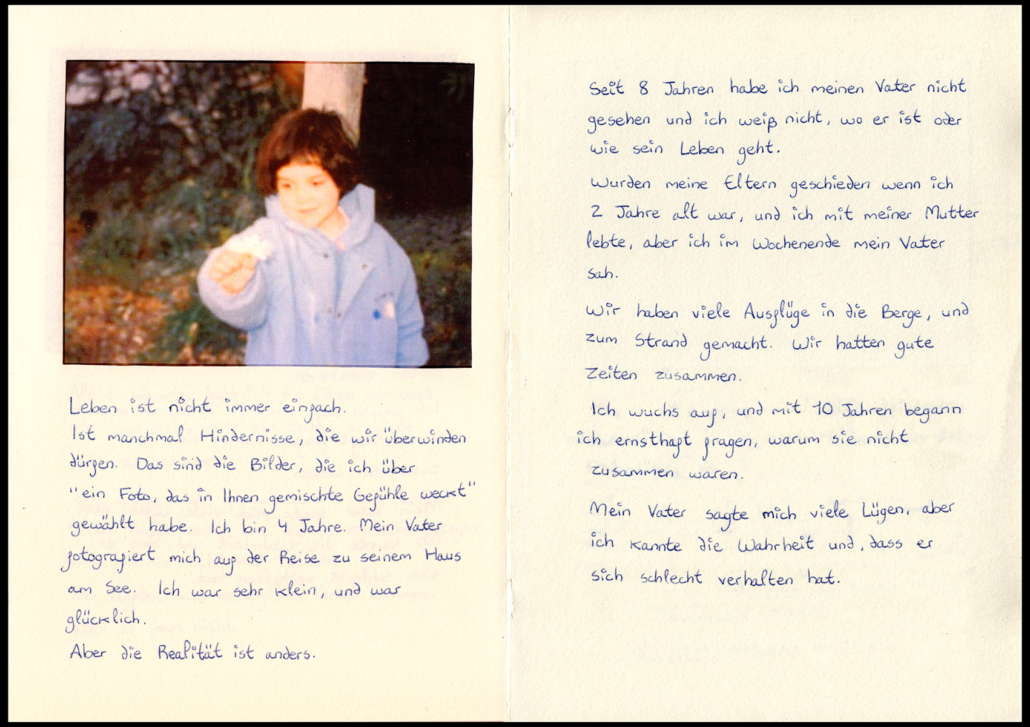 Leben ist nicht immer einfach.
Ist manchmal Hindernisse, die wir überwinden
dürfen. Das sind die Bilder, die ich über
"ein Foto, das in Ihnen gemischte Gefühle weckt"
gewählt habe. Ich bin 4 Jahre. Mein Vater
fotografiert mich auf der Reise zu seinem Haus
am See. Ich war sehr klein, und war
glücklich.
Aber die Realität ist anders.
Seit 8 Jahren habe ich meinen Vater nicht
gesehen und ich weiß nicht, wo er ist oder
wie sein Leben geht.
Wurden meine Eltern geschieden wenn ich
2 Jahre alt war, und ich mit meiner Mutter
lebte, aber ich im Wochenende mein Vater
sah.
Wir haben viele Ausflüge in die Berge, und
zum Strand gemacht. Wir hatten gute
Zeiten zusammen.
Ich wuchs auf, und mit 10 Jahren begann
ich ernsthaft fragen, warum sie nicht
zusammen waren.
Mein Vater sagte mich viele Lügen, aber
ich kannte die Wahrheit und, dass er
sich schlecht verhalten hat.